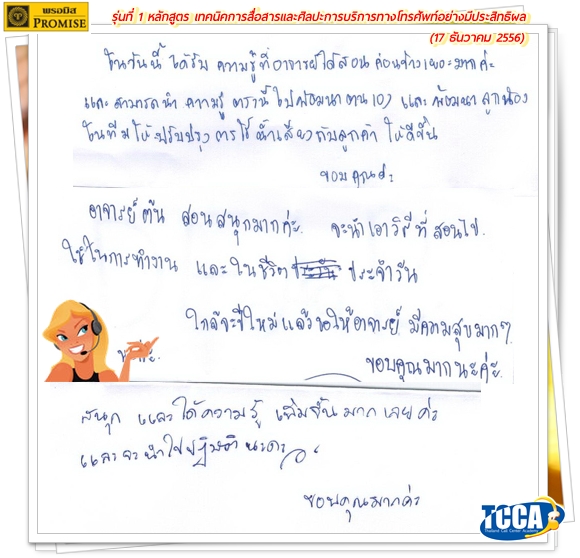 พรอมิส
PROMISE
รุ่นที่ 1 หลักสูตร เทคนิคการสื่อสารและศิลปะการบริการทางโทรศัพท์อย่างมีประสิทธิผล
(17 ธันวาคม 2556)
ในวันนี้ ได้รับ ความรู้ที่อาจารย์ได้สอน ค่อนข้างเยอะมากค่ะ
และ สามารถนำ ความรู้ ตรงนี้ไปพัฒนาตนเอง และ พัฒนา ลูกน้อง
ในทีมให้ปรับปรุง การใช้น้ำเสียงกับลูกค้า ให้ดีขึ้น
ขอบคุณค่ะ
อาจารย์ต้น สอนสนุกมากค่ะ. จะนำเอาวิธีที่สอนไป.
ใช้ในการทำงาน และในชีวิต ประจำวัน
ใกล้จะปีใหม่แล้วขอให้อาจารย์ มีความสุขมากๆ
ขอบคุณมากนะค่ะ.
สนุก และได้ความรู้ เพิ่มขึ้นมากเลยค่ะ
และจะนำไปปฏิบัตินะคะ
ขอบคุณมากค่ะ
TCCA
Thailand Call Center Academy